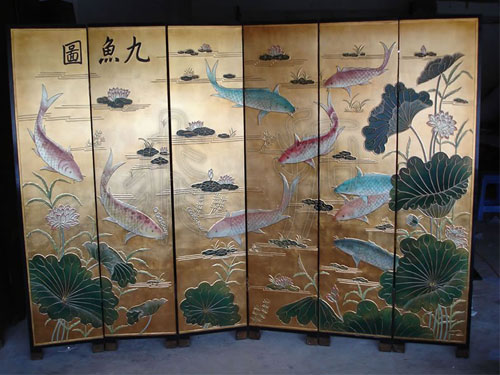 九魚圖